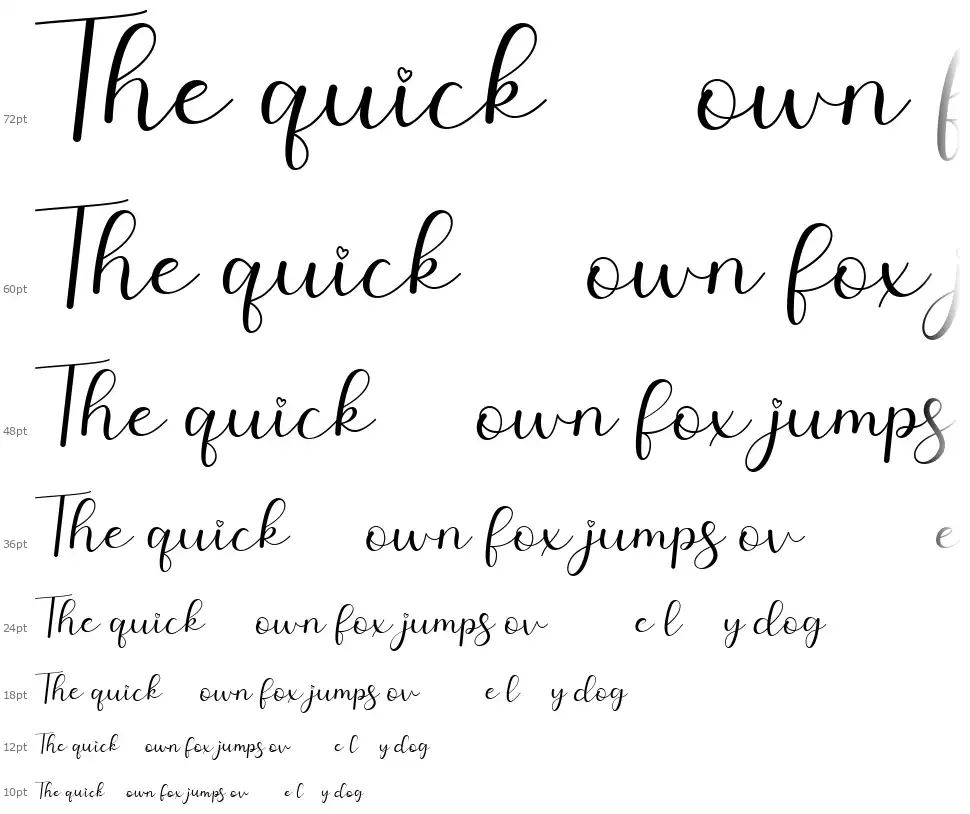 72pt The quick own f
60pt The quick own fox j
48pt The quick own fox jumps
36pt The quick own fox jumps ov e
24pt The quick own fox jumps ov e l y dog
18pt The quick own fox jumps ov e l y dog
12pt The quick own fox jumps ov e l y dog
10pt The quick own fox jumps ov e l y dog